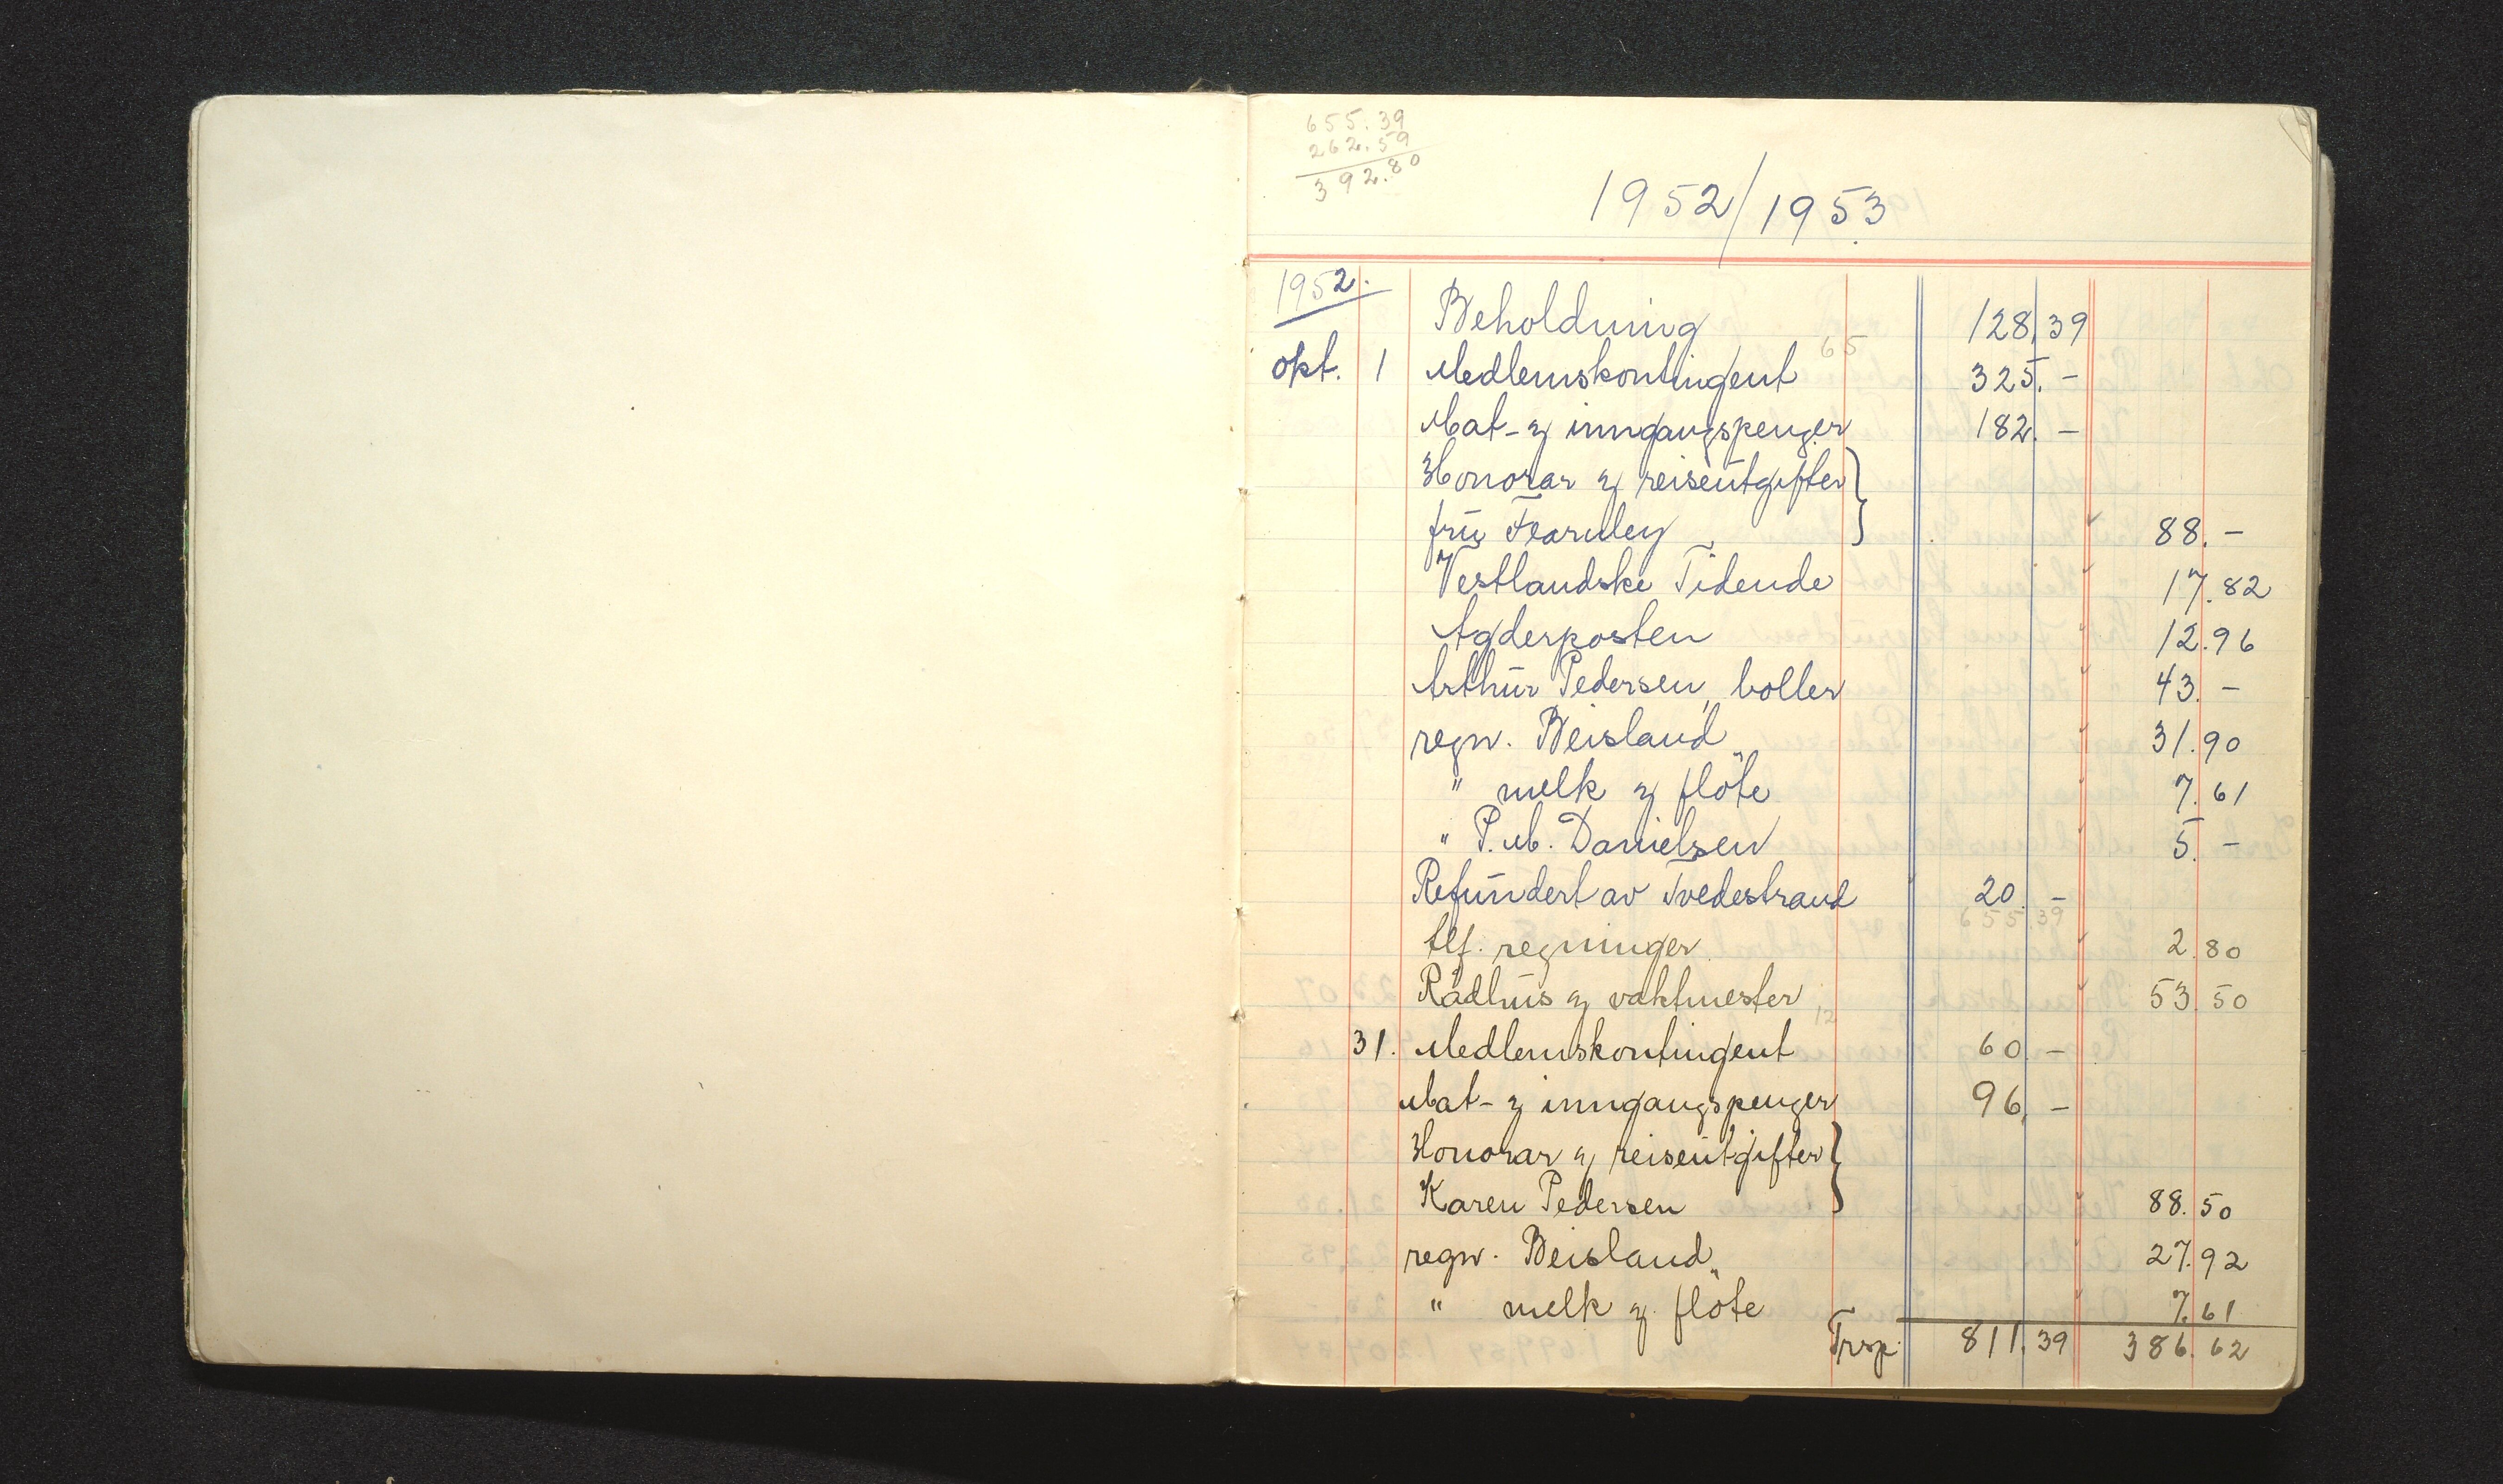 655.39
262.59
392.80
1952/1953
1952.
Beholdning 128.39
okt. 1 Medlemskontingent 65 325.-
Mat- og inngangspenger 182.-
Honorar og reiseutgifter }
fru Fearnley 88.-
Vestlandske Tidende 17.82
Agderposten 12.96
Arthur Pedersen, boller 43.-
regn. Beisland 31.90
" melk og flöte 7.61
" P.M. Danielsen 5.-
Refundert av Tvedestrand 20.-
655.39
tlf. regninger 2.80
Rådhus og vaktmester 53.50
31. Medlemskontingent 12 60.-
Mat- og inngangspenger 96.-
Honorar og reiseutgifter }
Karen Pedersen 88.50
regn. Beisland 27.92
" melk og flöte 7.61
Trsp. 811.39 386.62